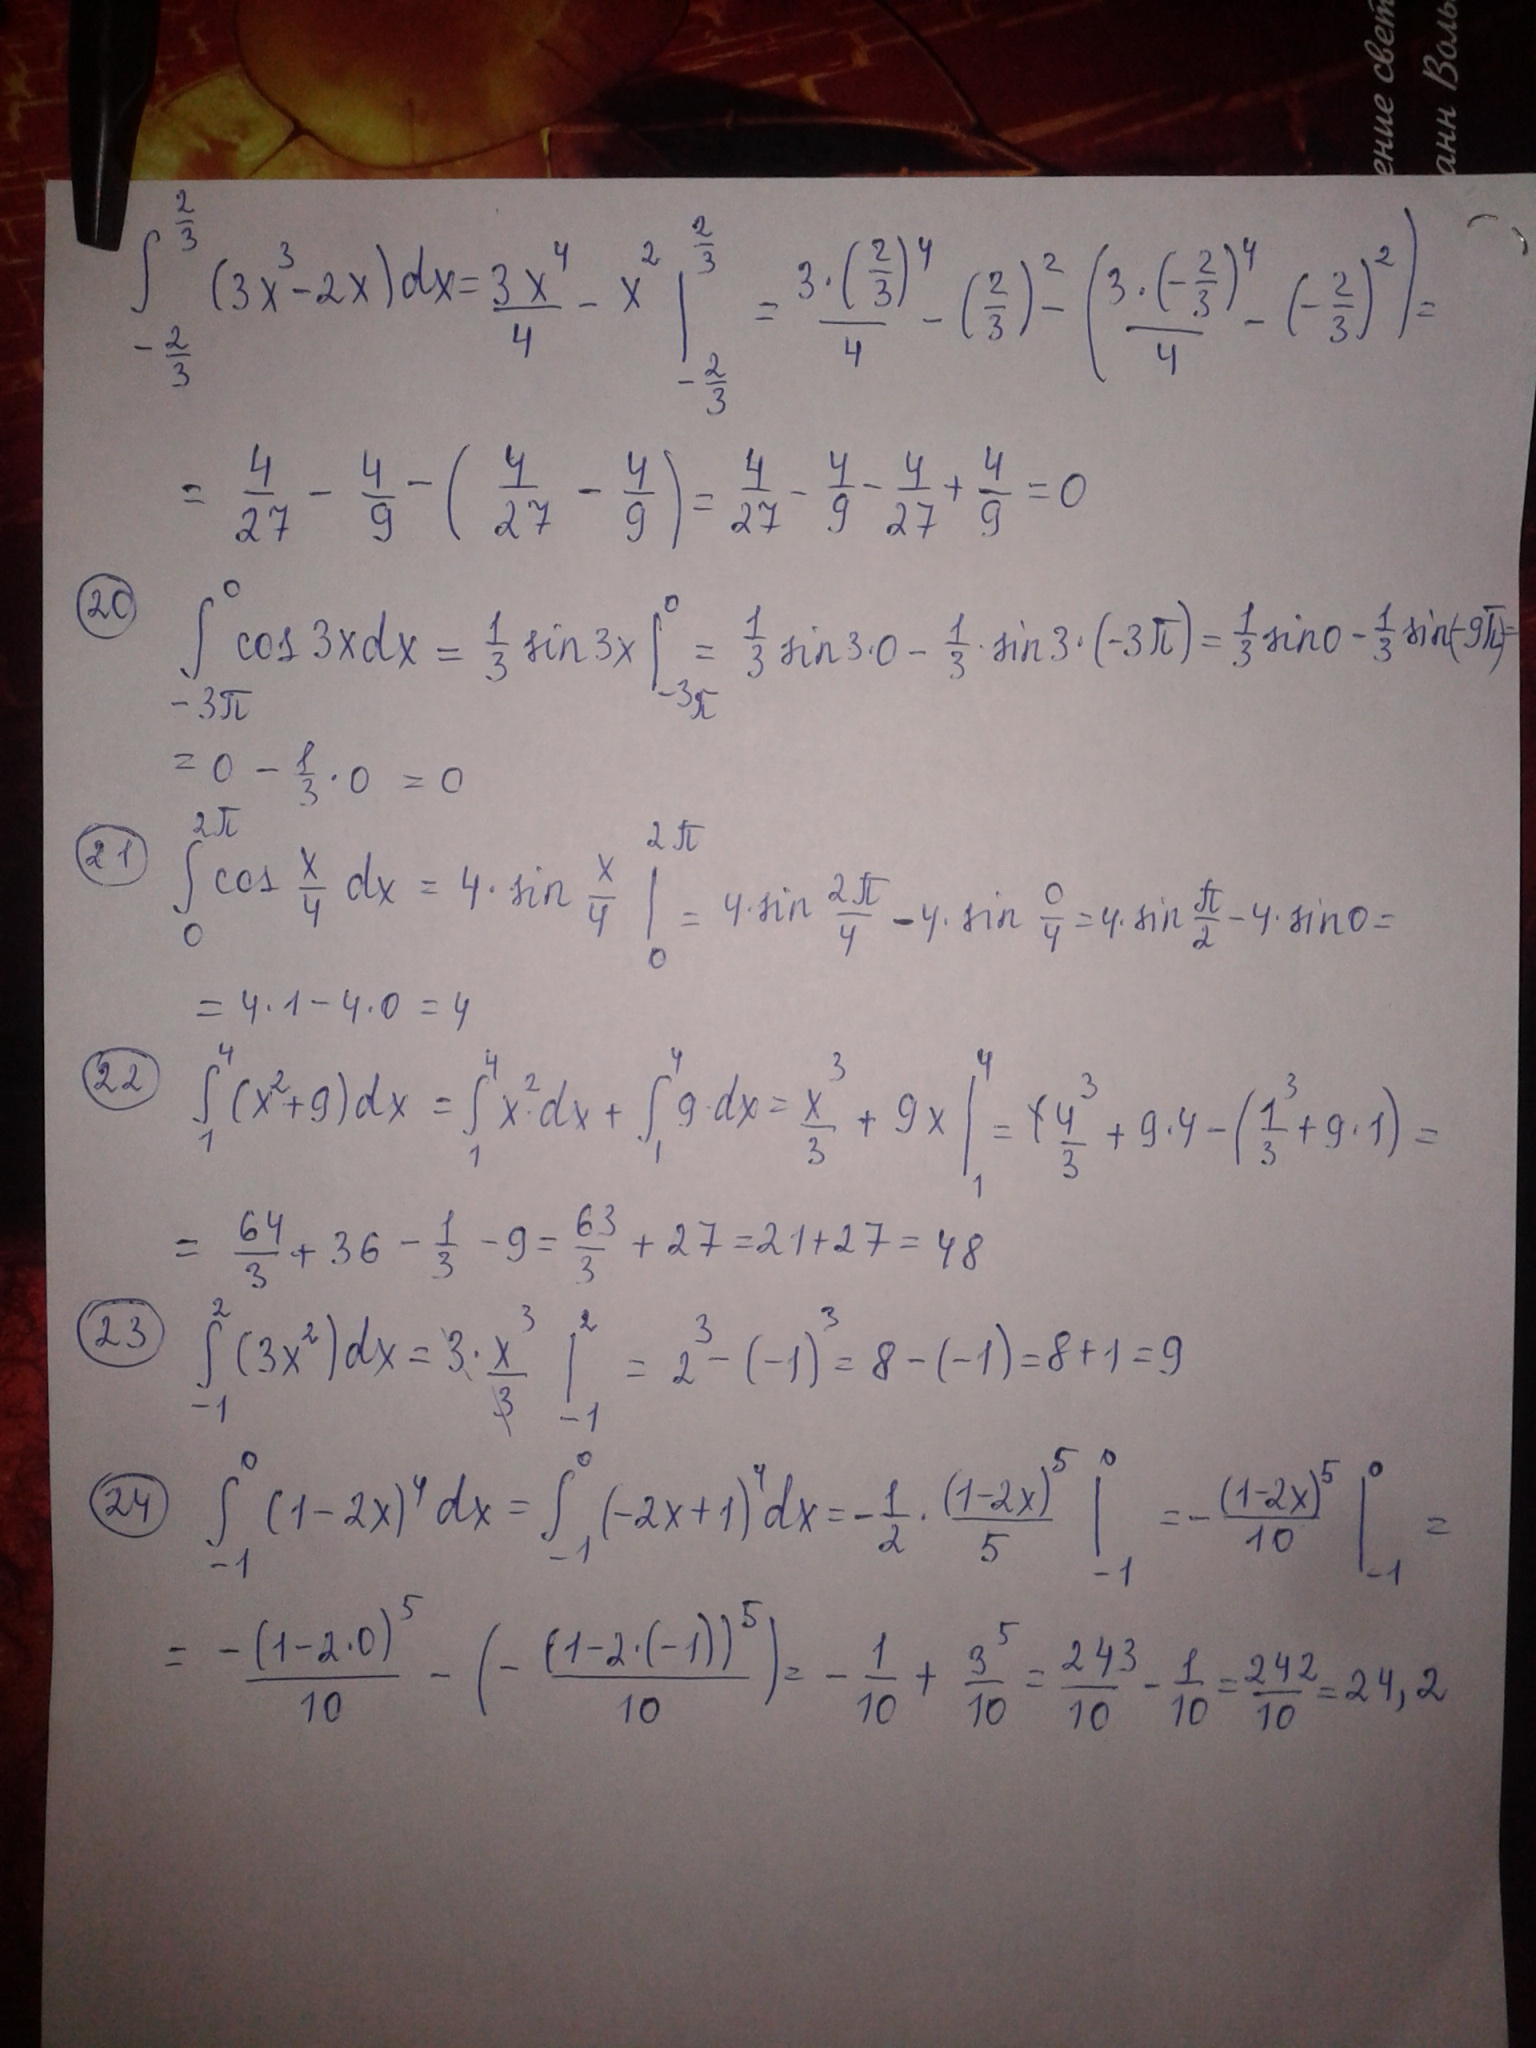 ение свет
анн Воль
∫_{-2/3}^{2/3} (3x³-2x)dx = 3x⁴/4 - x² |_{-2/3}^{2/3} = 3·(2/3)⁴/4 - (2/3)² - (3·(-2/3)⁴/4 - (-2/3)²) =
= 4/27 - 4/9 - (4/27 - 4/9) = 4/27 - 4/9 - 4/27 + 4/9 = 0
20 ∫_{-3π}^{0} cos 3x dx = 1/3 sin 3x |_{-3π}^{0} = 1/3 sin 3·0 - 1/3 · sin 3·(-3π) = 1/3 sin 0 - 1/3 sin(-9π) =
= 0 - 1/3 · 0 = 0
21 ∫_{0}^{2π} cos x/4 dx = 4· sin x/4 |_{0}^{2π} = 4·sin 2π/4 - 4· sin 0/4 = 4· sin π/2 - 4· sin 0 =
= 4·1 - 4·0 = 4
22 ∫_{1}^{4} (x²+9)dx = ∫_{1}^{4} x²·dx + ∫_{1}^{4} 9·dx = x³/3 + 9x |_{1}^{4} = 4³/3 + 9·4 - (1³/3 + 9·1) =
= 64/3 + 36 - 1/3 - 9 = 63/3 + 27 = 21 + 27 = 48
23 ∫_{-1}^{2} (3x²)dx = 3· x³/3 |_{-1}^{2} = 2³ - (-1)³ = 8 - (-1) = 8 + 1 = 9
24 ∫_{-1}^{0} (1-2x)⁴ dx = ∫_{-1}^{0} (-2x+1)⁴ dx = -1/2 · (1-2x)⁵/5 |_{-1}^{0} = - (1-2x)⁵/10 |_{-1}^{0} =
= -(1-2·0)⁵/10 - (- (1-2·(-1))⁵/10) = - 1/10 + 3⁵/10 = 243/10 - 1/10 = 242/10 = 24,2